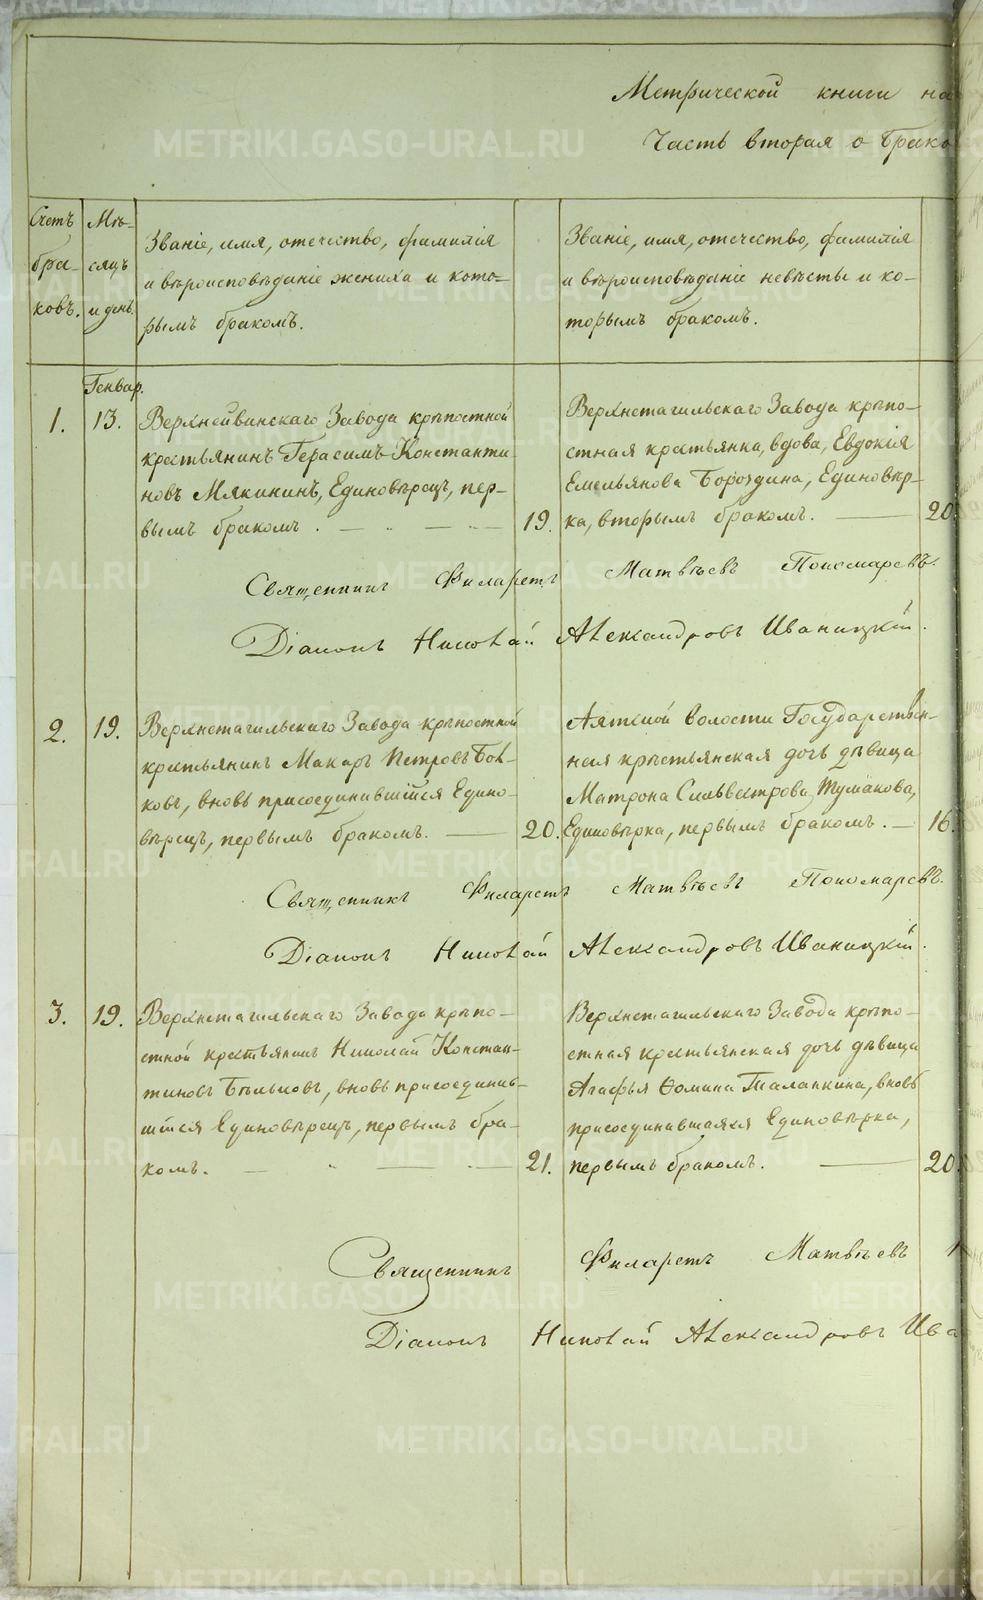 Метрической книги на
Часть вторая о брако
Счетъ
бра-
ковъ.
Мѣ-
сяцъ
и день.
Званіе, имя, отечество, фамилія
и вѣроисповѣданіе жениха и кото-
рымъ бракомъ.
Званіе, имя, отечество, фамилія
и вѣроисповѣданіе невѣсты и ко-
торымъ бракомъ.
Генвар.
1. 13. Верхнейвинскаго Завода крѣпостной
крестьянинъ Герасимъ Константи-
новъ Мякининъ, Единовѣрецъ, пер-
вымъ бракомъ. 19.
Верхнетагильскаго Завода крѣпо-
стная крестьянка, вдова, Евдокія
Емельянова Бороздина, Единовѣр-
ка, вторымъ бракомъ. 20.
Священникъ Филаретъ Матвѣевъ Пономаревъ.
Діаконъ Николай Александровъ Иваницкій.
2. 19. Верхнетагильскаго Завода крѣпостной
крестьянинъ Макаръ Петровъ Бол-
ковъ, вновь присоединившійся Едино-
вѣрецъ, первымъ бракомъ. 20.
Аятской волости Государствен-
ная крестьянская дочь дѣвица
Матрона Сильвестрова Тумакова,
Единовѣрка, первымъ бракомъ. 16.
Священникъ Филаретъ Матвѣевъ Пономаревъ.
Діаконъ Николай Александровъ Иваницкій.
3. 19. Верхнетагильскаго Завода крѣпо-
стной крестьянинъ Николай Констан-
тиновъ Бѣльковъ, вновь присоединив-
шійся Единовѣрецъ, первымъ бра-
комъ. 21.
Верхнетагильскаго Завода крѣпо-
стная крестьянская дочь дѣвица
Агафья Ѳомина Таланкина, вновь
присоединившаяся Единовѣрка,
первымъ бракомъ. 20.
Священникъ Филаретъ Матвѣевъ
Діаконъ Николай Александровъ Ива
METRIKI.GASO-URAL.RU